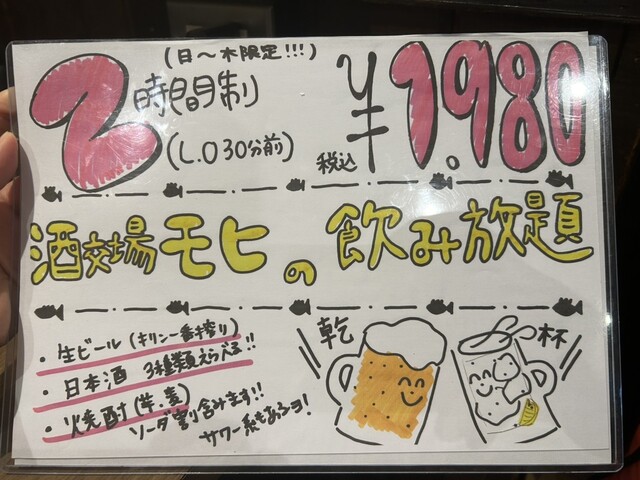 (日～木限定!!!)
2時間制
(L.O 30分前)
税込 ¥1.980
酒交場モヒの飲み放題
・生ビール(キリン一番搾り)
・日本酒 3種類えらべる!!
・焼酎(芋、麦)
ソーダ割り含みます!!
サワー系もあるヨ!
乾杯